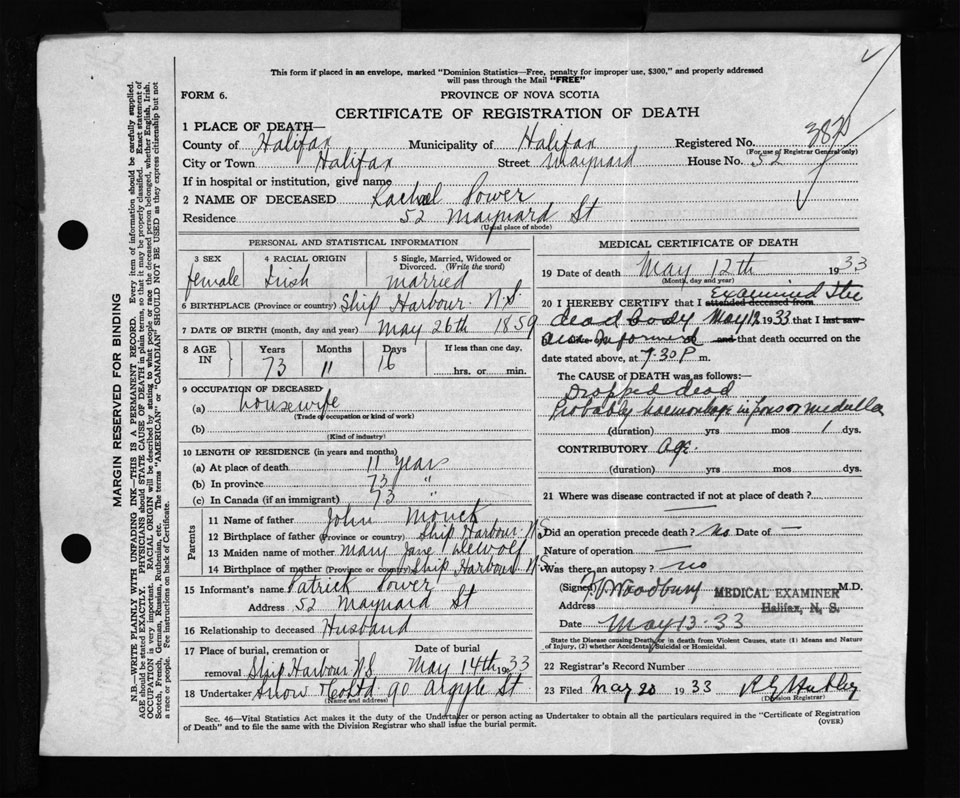 This form if placed in an envelope, marked "Dominion Statistics—Free, penalty for improper use, $300," and properly addressed
will pass through the Mail "FREE"
FORM 6.
PROVINCE OF NOVA SCOTIA
CERTIFICATE OF REGISTRATION OF DEATH
1 PLACE OF DEATH—
County of Halifax Municipality of Halifax Registered No.
(For use of Registrar General only)
City or Town Halifax Street Maynard House No. 52
If in hospital or institution, give name
2 NAME OF DECEASED Rachael Power
Residence 52 Maynard St
(Usual place of abode)
PERSONAL AND STATISTICAL INFORMATION
3 SEX 4 RACIAL ORIGIN 5 Single, Married, Widowed or
Divorced. (Write the word)
female Irish married
6 BIRTHPLACE (Province or country) Ship Harbour N.S.
7 DATE OF BIRTH (month, day and year) May 26th 1859
8 AGE IN Years Months Days If less than one day,
73 11 16 hrs. or min.
9 OCCUPATION OF DECEASED
(a) housewife
(Trade of occupation or kind of work)
(b)
(Kind of industry)
10 LENGTH OF RESIDENCE (in years and months)
(a) At place of death 11 years
(b) In province 73 "
(c) In Canada (if an immigrant) 73 "
Parents
11 Name of father John Monck
12 Birthplace of father (Province or country) Ship Harbour N.S
13 Maiden name of mother Mary Jane Dewolf
14 Birthplace of mother (Province or country) Ship Harbour N.S
15 Informant's name Patrick Power
Address 52 Maynard St
16 Relationship to deceased Husband
17 Place of burial, cremation or Date of burial
removal Ship Harbour N.S May 14th 1933
18 Undertaker Snow & Co Ltd 90 Argyle St
(Name and address)
MEDICAL CERTIFICATE OF DEATH
19 Date of death May 12th 1933
(Month, day and year)
20 I HEREBY CERTIFY that I attended deceased from examined the
dead body May 12 1933 that I last saw
informed and that death occurred on the
date stated above, at 7.30 P m.
The CAUSE OF DEATH was as follows:—
Dropped dead
Probably haemorhage in pons or medulla
(duration) yrs mos 1 dys.
CONTRIBUTORY Age
(duration) yrs mos dys.
21 Where was disease contracted if not at place of death? —
Did an operation precede death? No Date of —
Nature of operation —
Was there an autopsy? no
(Signed) Woodbury M.D.
MEDICAL EXAMINER
Address Halifax, N. S.
Date May 13 33
State the Disease causing Death, or in death from Violent Causes, state (1) Means and Nature
of Injury, (2) whether Accidental, Suicidal or Homicidal.
22 Registrar's Record Number
23 Filed May 20 1933
(Division Registrar)
Sec. 46—Vital Statistics Act makes it the duty of the Undertaker or person acting as Undertaker to obtain all the particulars required in the "Certificate of Registration
of Death" and to file the same with the Division Registrar who shall issue the burial permit.
(OVER)
MARGIN RESERVED FOR BINDING
N.B.—WRITE PLAINLY WITH UNFADING INK—THIS IS A PERMANENT RECORD. Every item of information should be carefully supplied.
AGE should be stated EXACTLY. PHYSICIANS should STATE CAUSE OF DEATH in plain terms, so that it may be properly classified. Exact statement of
OCCUPATION is very important. RACIAL ORIGIN will be described by stating to what people or race the deceased person belonged, whether English, Irish,
Scotch, French, German, Russian, Ruthenian, etc. The terms "AMERICAN" or "CANADIAN" SHOULD NOT BE USED as they express citizenship but not
a race or people. See instructions on back of Certificate.